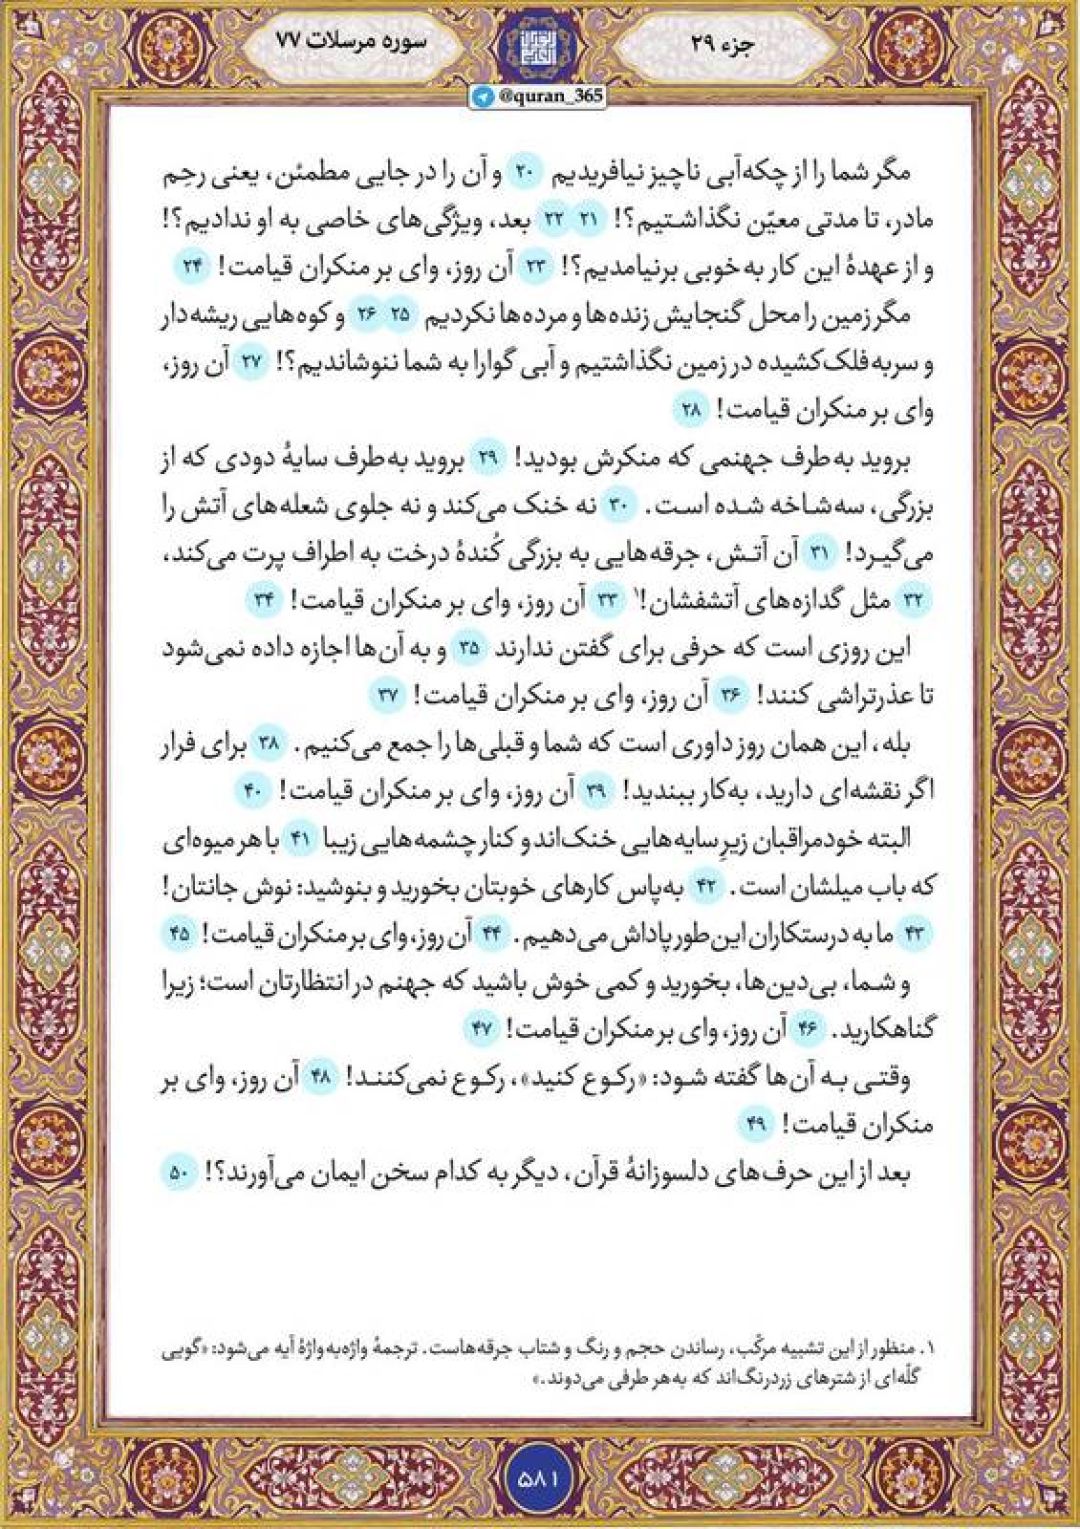 جزء ۲۹
سوره مرسلات ۷۷
@quran_365
مگر شما را از چکه‌آبی ناچیز نیافریدیم ۲۰ و آن را در جایی مطمئن، یعنی رحِم
مادر، تا مدتی معیّن نگذاشتیم؟! ۲۱ ۲۲ بعد، ویژگی‌های خاصی به او ندادیم؟!
و از عهدهٔ این کار به‌خوبی برنیامدیم؟! ۲۳ آن روز، وای بر منکران قیامت! ۲۴
مگر زمین را محل گنجایش زنده‌ها و مرده‌ها نکردیم ۲۵ ۲۶ و کوه‌هایی ریشه‌دار
و سربه‌فلک‌کشیده در زمین نگذاشتیم و آبی گوارا به شما ننوشاندیم؟! ۲۷ آن روز،
وای بر منکران قیامت! ۲۸
بروید به‌طرف جهنمی که منکرش بودید! ۲۹ بروید به‌طرف سایهٔ دودی که از
بزرگی، سه‌شاخه شده است. ۳۰ نه خنک می‌کند و نه جلوی شعله‌های آتش را
می‌گیرد! ۳۱ آن آتش، جرقه‌هایی به بزرگی کُندهٔ درخت به اطراف پرت می‌کند،
۳۲ مثل گدازه‌های آتشفشان!۱ ۳۳ آن روز، وای بر منکران قیامت! ۳۴
این روزی است که حرفی برای گفتن ندارند ۳۵ و به آن‌ها اجازه داده نمی‌شود
تا عذرتراشی کنند! ۳۶ آن روز، وای بر منکران قیامت! ۳۷
بله، این همان روز داوری است که شما و قبلی‌ها را جمع می‌کنیم. ۳۸ برای فرار
اگر نقشه‌ای دارید، به‌کار ببندید! ۳۹ آن روز، وای بر منکران قیامت! ۴۰
البته خودمراقبان زیرِ سایه‌هایی خنک‌اند و کنار چشمه‌هایی زیبا ۴۱ با هر میوه‌ای
که باب میلشان است. ۴۲ به‌پاس کارهای خوبتان بخورید و بنوشید: نوش جانتان!
۴۳ ما به درستکاران این‌طور پاداش می‌دهیم. ۴۴ آن روز، وای بر منکران قیامت! ۴۵
و شما، بی‌دین‌ها، بخورید و کمی خوش باشید که جهنم در انتظارتان است؛ زیرا
گناهکارید. ۴۶ آن روز، وای بر منکران قیامت! ۴۷
وقتی به آن‌ها گفته شود: «رکوع کنید»، رکوع نمی‌کنند! ۴۸ آن روز، وای بر
منکران قیامت! ۴۹
بعد از این حرف‌های دلسوزانهٔ قرآن، دیگر به کدام سخن ایمان می‌آورند؟! ۵۰
۱. منظور از این تشبیه مرکّب، رساندن حجم و رنگ و شتاب جرقه‌هاست. ترجمهٔ واژه‌به‌واژهٔ آیه می‌شود: «گویی
گلّه‌ای از شترهای زردرنگ‌اند که به‌هر طرفی می‌دوند.»
۵۸۱